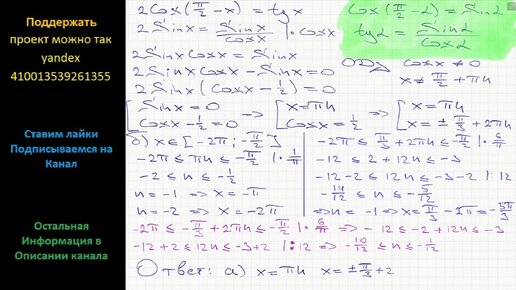 Поддержать
проект можно так
yandex
410013539261355
Ставим лайки
Подписываемся на
Канал
Остальная
Информация в
Описании канала
2Cos(π/2 - x) = tg x
2Sinx = Sinx/Cosx | · Cosx
2Sinx Cosx = Sinx
2Sinx Cosx - Sinx = 0
2Sinx (Cosx - 1/2) = 0
[ Sinx = 0 → [ x = πn → [ x = πn
[ Cosx - 1/2 = 0 [ Cosx = 1/2 [ x = ± π/3 + 2πn
Cos(π/2 - α) = Sinα
tgα = Sinα/Cosα
ОДЗ Cosx ≠ 0
x ≠ π/2 + πn
б) x ∈ [-2π; -π/2]
-2π ≤ πn ≤ -π/2 | · 1/π
-2 ≤ n ≤ -1/2
n = -1 ⇒ x = -π
n = -2 ⇒ x = -2π
-2π ≤ π/3 + 2πn ≤ -π/2 | · 6/π
-12 ≤ 2 + 12n ≤ -3
-12 - 2 ≤ 12n ≤ -3 - 2 | : 12
-14/12 ≤ n ≤ -5/12
⇒ n = -1 ⇒ x = π/3 - 2π = -5π/3
-2π ≤ -π/3 + 2πn ≤ -π/2 | · 6/π ⇒ -12 ≤ -2 + 12n ≤ -3
-12 + 2 ≤ 12n ≤ -3 + 2 | : 12 ⇒ -10/12 ≤ n ≤ -1/12
Ответ: а) x = πn x = ± π/3 + 2